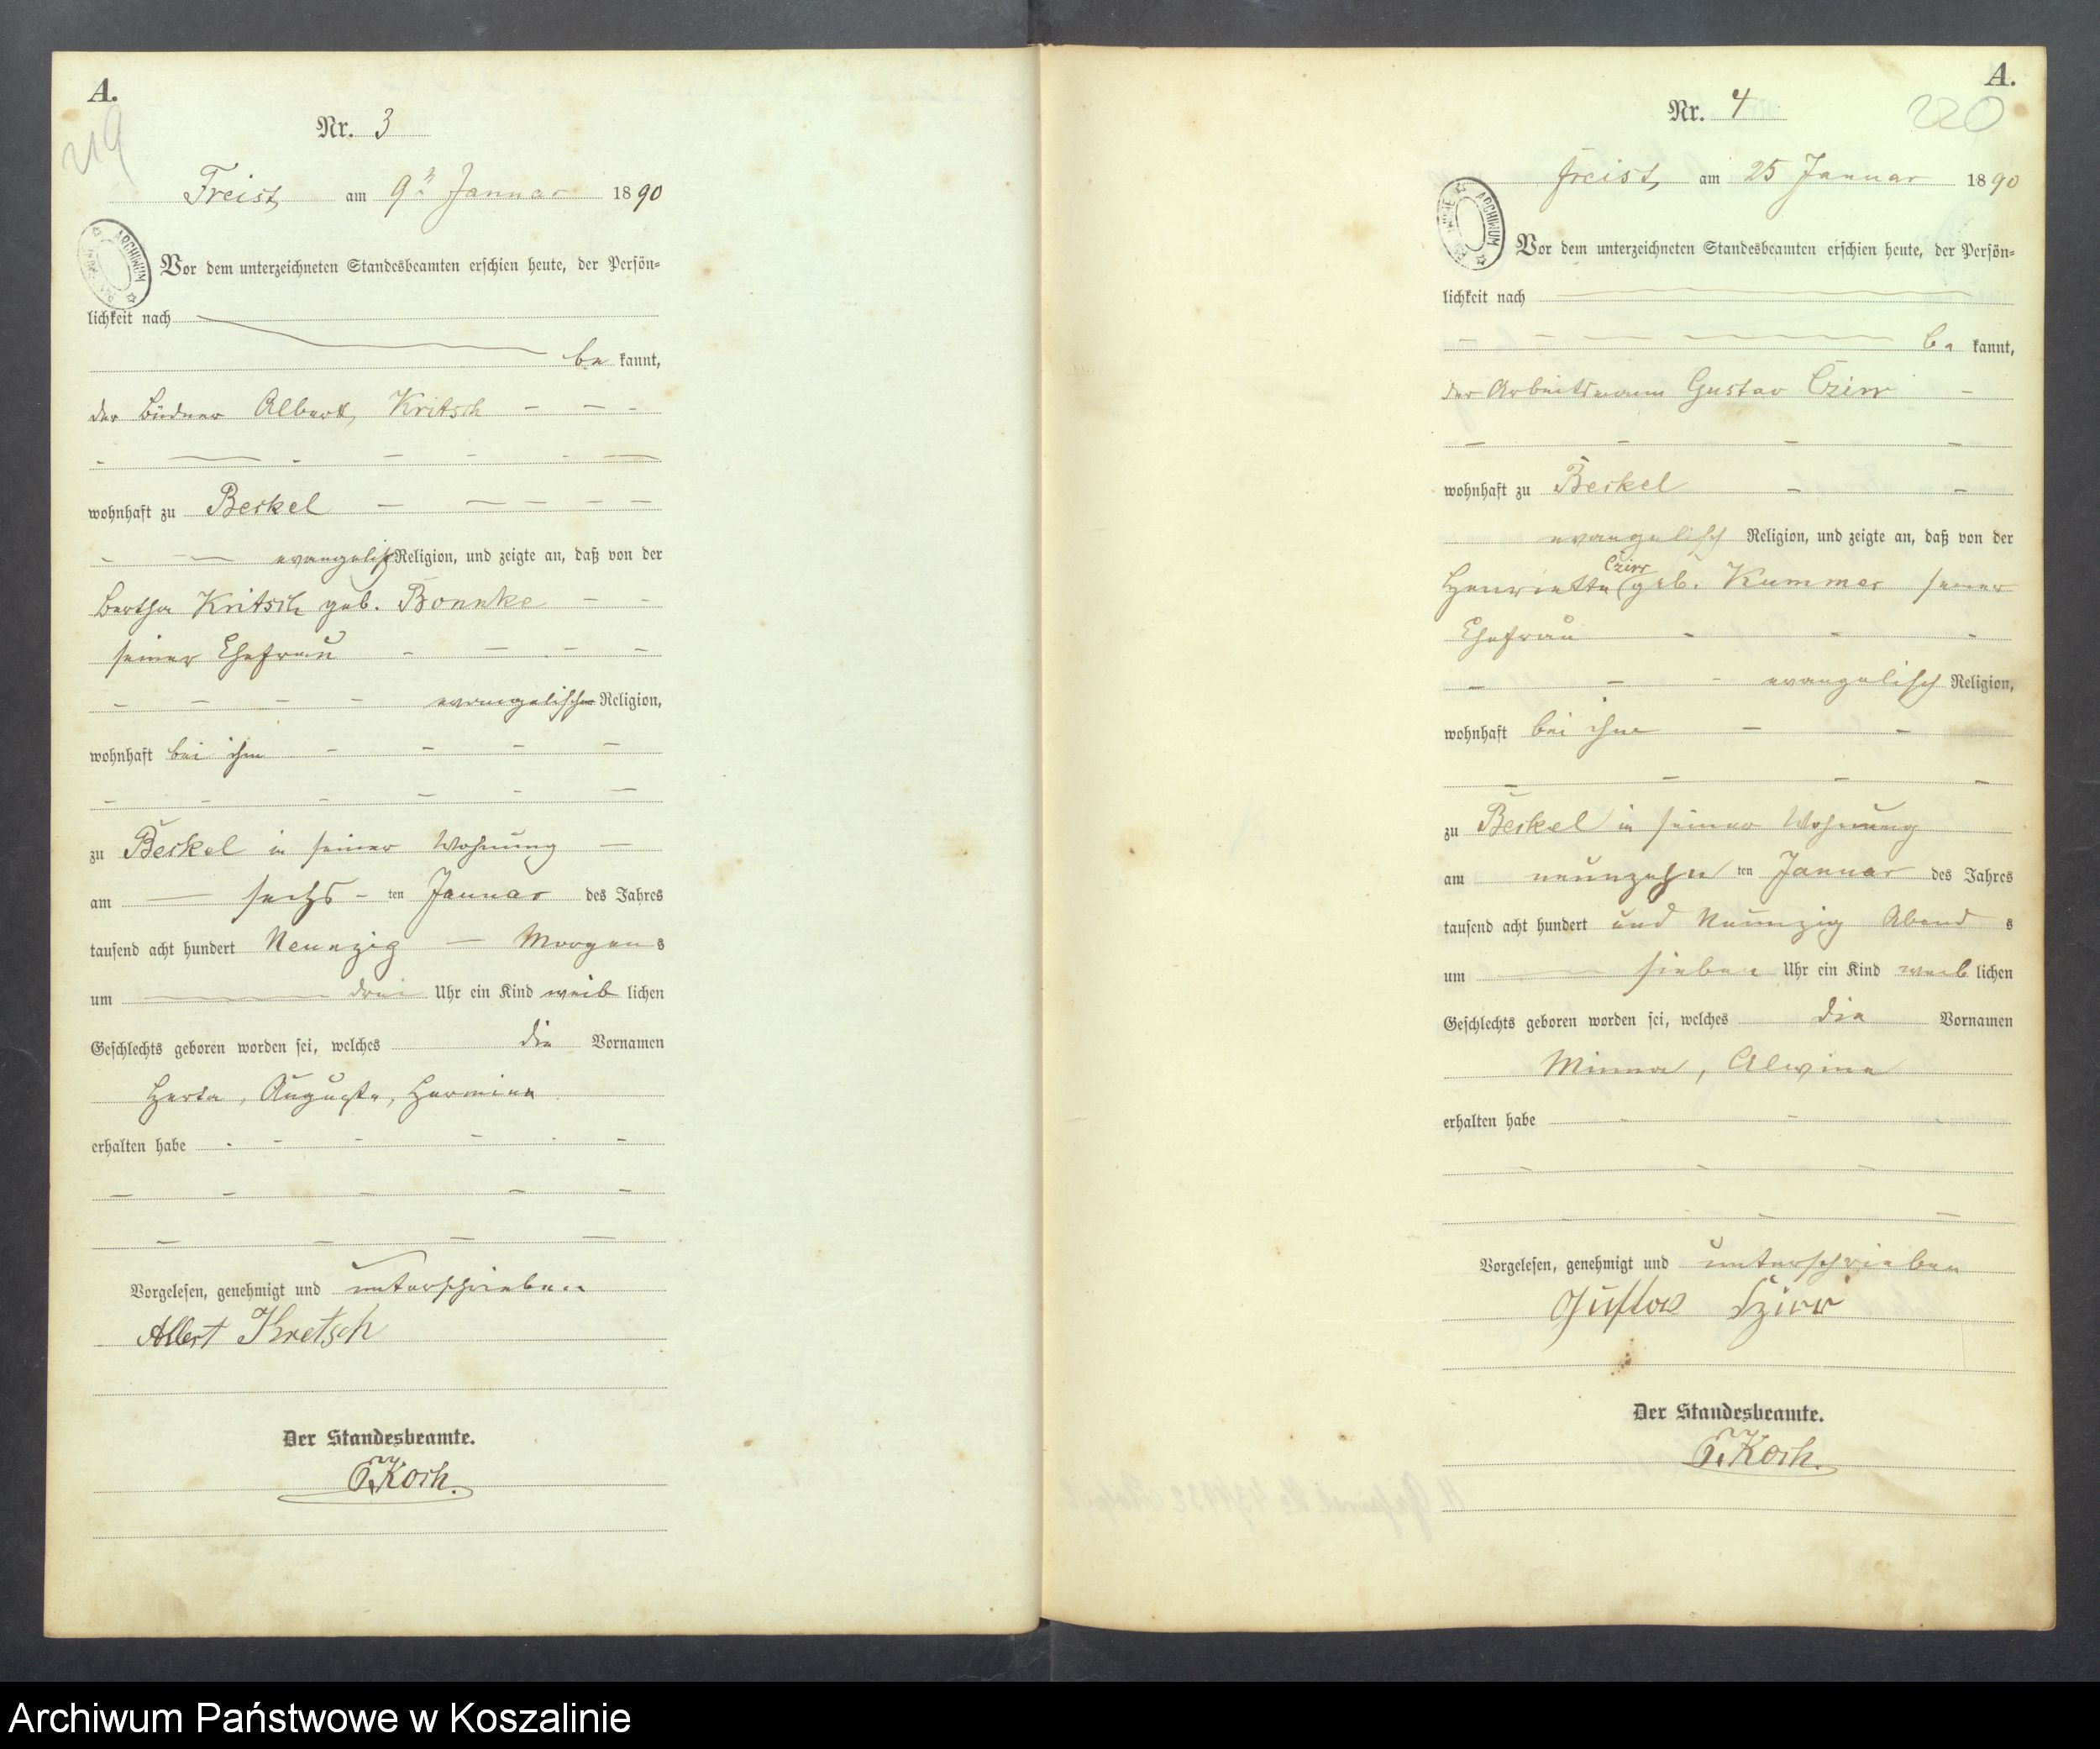 A.
219
Nr. 3
Freist, am 9n Januar 1890
ARCHIWUM
Vor dem unterzeichneten Standesbeamten erschien heute, der Persön=
lichkeit nach
be kannt,
der Büdner Albert Kritsch - - -
wohnhaft zu Beskel
evangelisch Religion, und zeigte an, daß von der
Bertha Kritsch geb. Bonnke - -
seiner Ehefrau
evangelischer Religion,
wohnhaft bei ihm
zu Beskel in seiner Wohnung
am sechs ten Januar des Jahres
tausend acht hundert Neunzig Morgen s
um drei Uhr ein Kind weib lichen
Geschlechts geboren worden sei, welches die Vornamen
Herta, Auguste, Hermine
erhalten habe
Vorgelesen, genehmigt und unterschrieben
Albert Kretsch
Der Standesbeamte.
Koch.
A.
220
Nr. 4
Freist, am 25 Januar 1890
ARCHIWUM
Vor dem unterzeichneten Standesbeamten erschien heute, der Persön=
lichkeit nach
be kannt,
der Arbeitsmann Gustav Czirr
wohnhaft zu Beskel
evangelisch Religion, und zeigte an, daß von der
Czirr
Henriette geb. Kummer seiner
Ehefrau
evangelisch Religion,
wohnhaft bei ihm
zu Beskel in seiner Wohnung
am neunzehn ten Januar des Jahres
tausend acht hundert und Neunzig Abend s
um sieben Uhr ein Kind weib lichen
Geschlechts geboren worden sei, welches die Vornamen
Minna, Alwine
erhalten habe
Vorgelesen, genehmigt und unterschrieben
Gustav Czirr
Der Standesbeamte.
Koch.
Archiwum Państwowe w Koszalinie